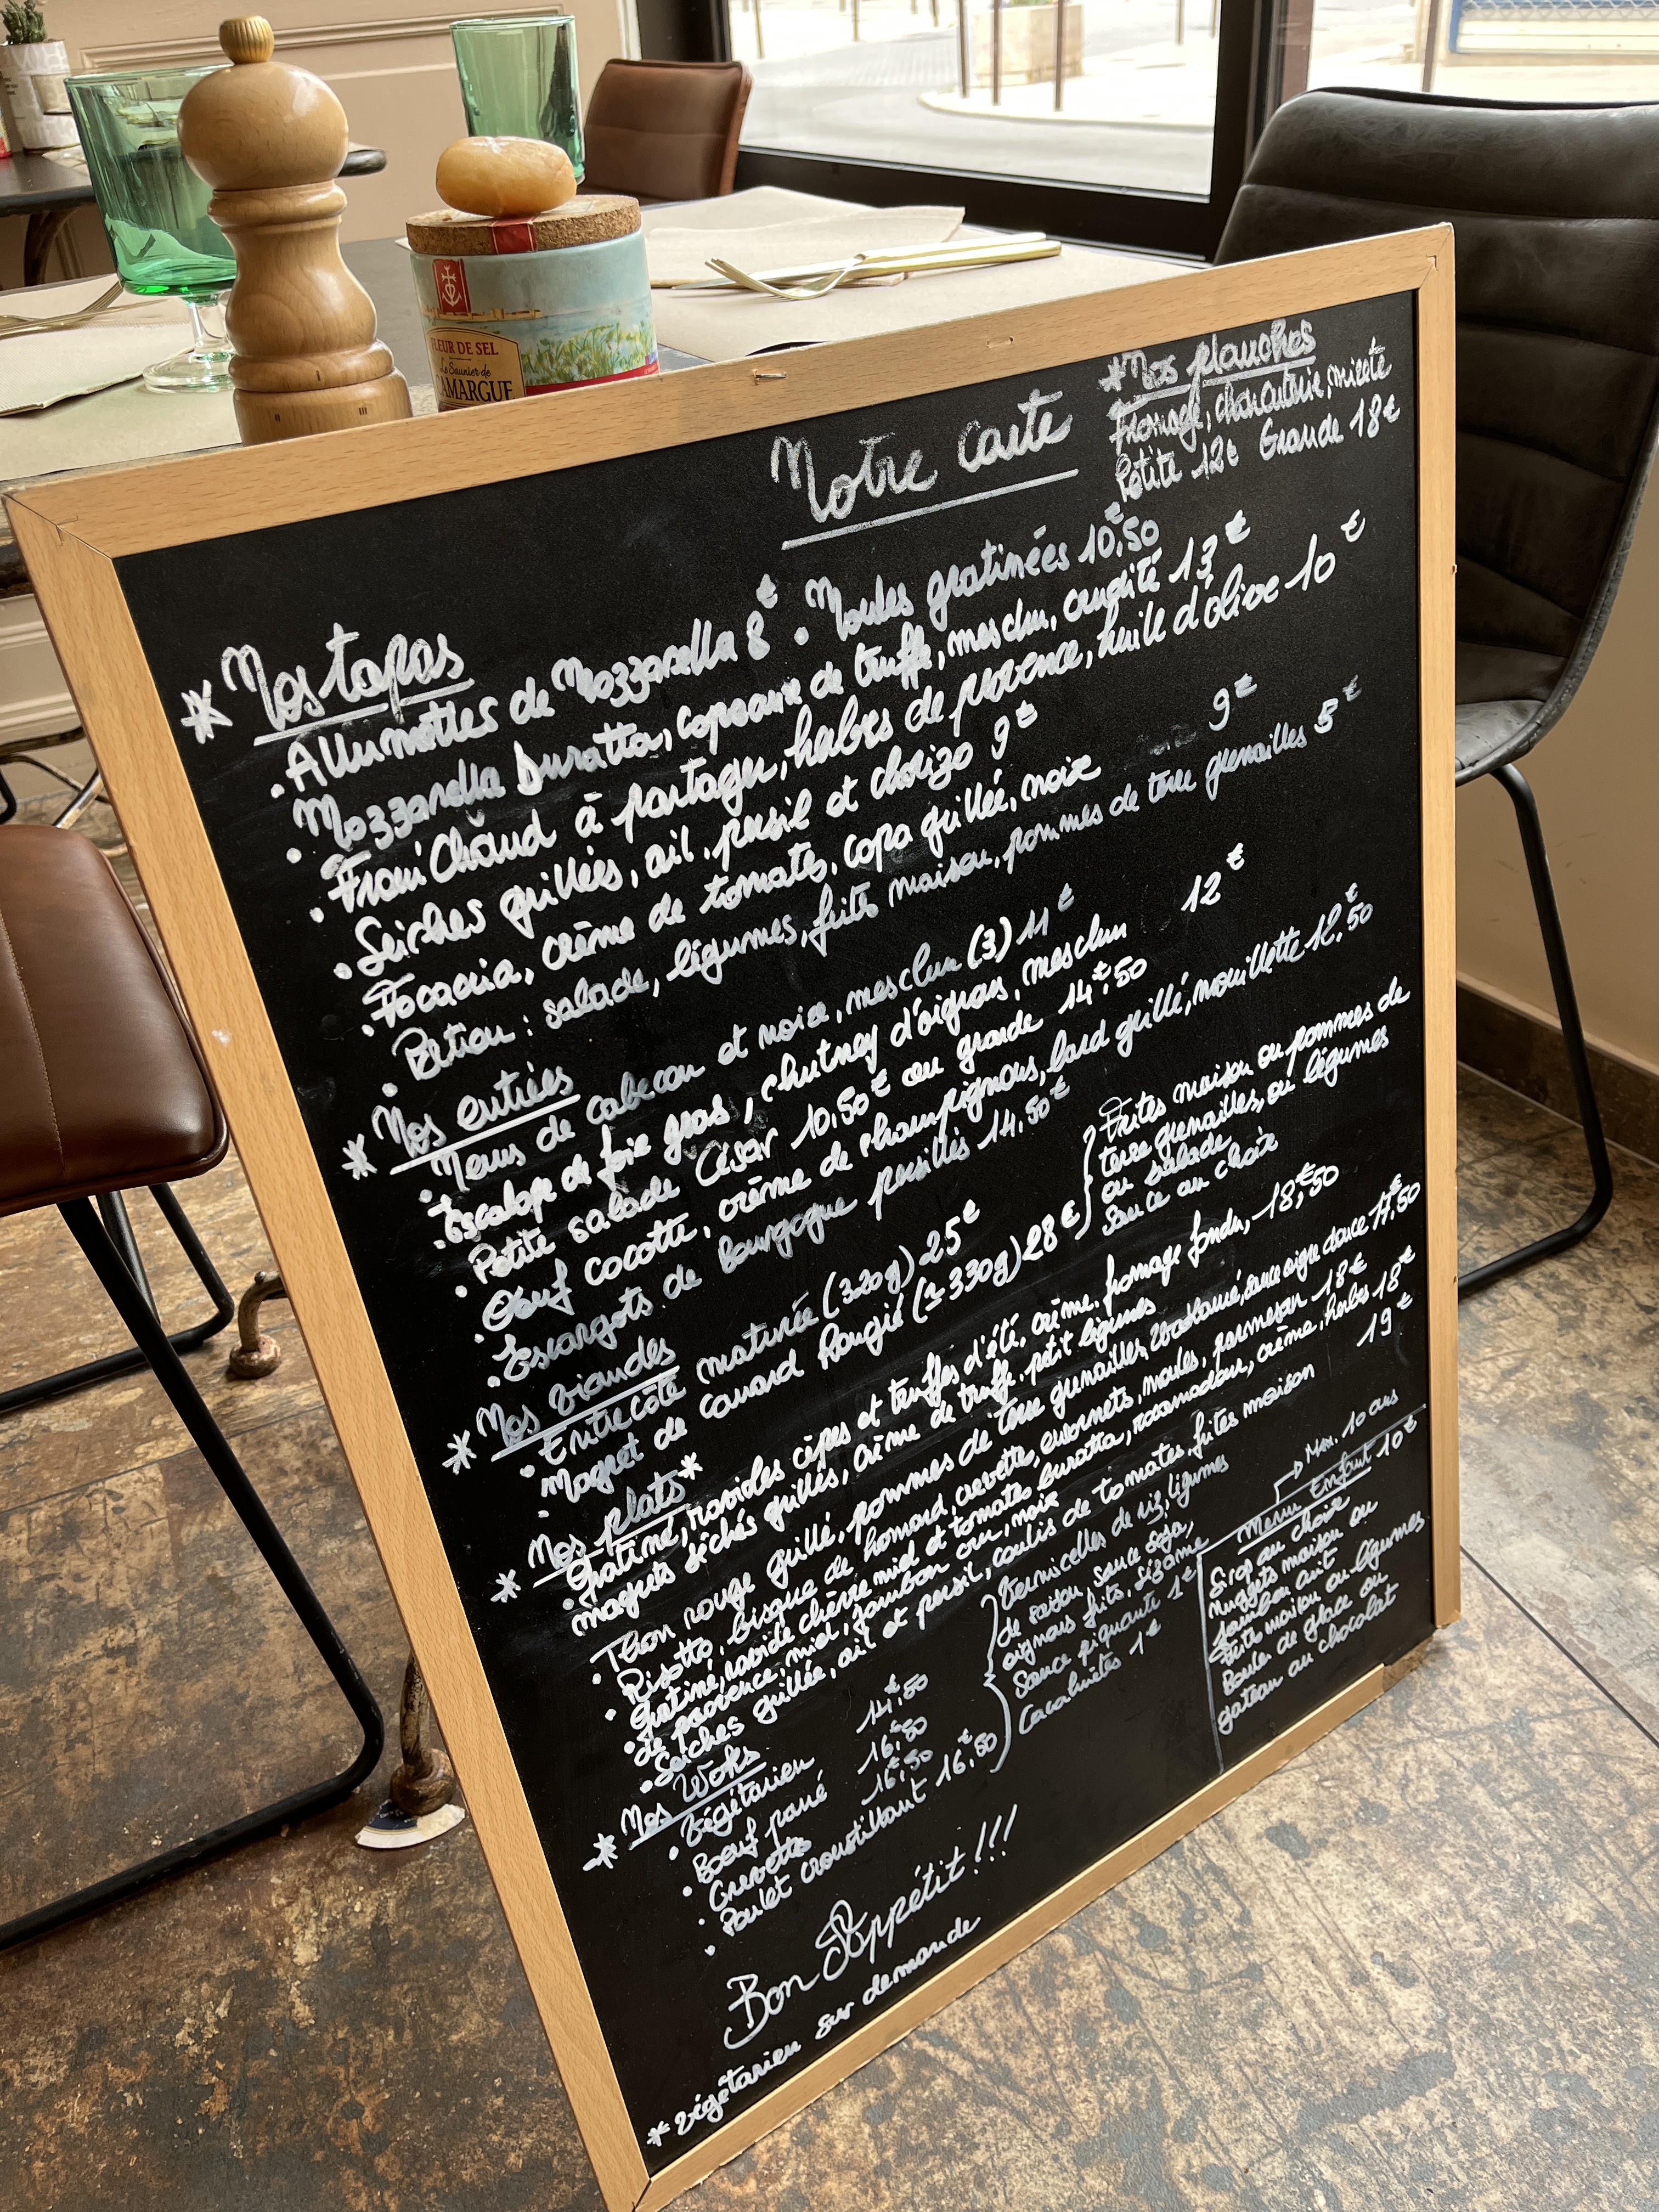 FLEUR DE SEL
Le Saunier de
CAMARGUE
Notre carte
*Nos planches
Fromage, charcuterie, mixte
Petite 12€ Grande 18€
* Nos tapas
. Allumettes de Mozzarella 8€ . Moules gratinées 10€,50
. Mozzarella Buratta, carpaccio de truffe, mesclun, crudité 13€
. From'Chaud à partager, herbes de provence, huile d'olive 10€
. Seiches grillées, ail, persil et chorizo 9€
. Focaccia, crème de tomates, copa grillée, noix 9€
. Portion : salade, légumes, frites maison, pommes de terre grenailles 5€
* Nos entrées
. Nems de cabecou et noix, mesclun (3) 11€
. Escalope de foie gras, chutney d'oignons, mesclun 12€
. Petite salade César 10.50€ ou grande 14€.50
. Oeuf cocotte, crème de champignons, lard grillé, mouillette 12€.50
. Escargots de Bourgogne persillés 14.50€
* Nos viandes
. Entrecôte maturée (320g) 25€
. Magret de canard Rougié (± 330g) 28€
Frites maison ou pommes de
terre grenailles, ou légumes
ou salade
Sauce au choix
* Nos plats*
. Gratiné, ravioles cèpes et truffes d'été, crème, fromage fondu, 18€,50
magrets séchés grillés, crème de truffe, petit légumes
. Thon rouge grillé, pommes de terre grenailles, sauce aigre douce 17€,50
. Risotto, bisque de homard, crevette, moules, parmesan 18€
. Gratiné, raviole chèvre miel et tomates buratta, crème, herbes 18€
de provence, miel, jambon cru, noix
. Seiches grillée, ail et persil, coulis de tomates, frites maison 19€
* Nos Woks
. Végétarien 14€.50
. Boeuf pané 16€.50
. Crevette 16€.50
. Poulet croustillant 16€.50
Vermicelles de riz, légumes
de saison, sauce soja,
oignons frits, sésame
Sauce piquante 1€
Cacahuètes 1€
Min. 10 ans
Menu Enfant 10€
Sirop au choix
Nuggets maison ou
jambon cuit
Frites maison ou légumes
Boule de glace ou
gateau au chocolat
Bon Appétit !!!
* Végétarien sur demande